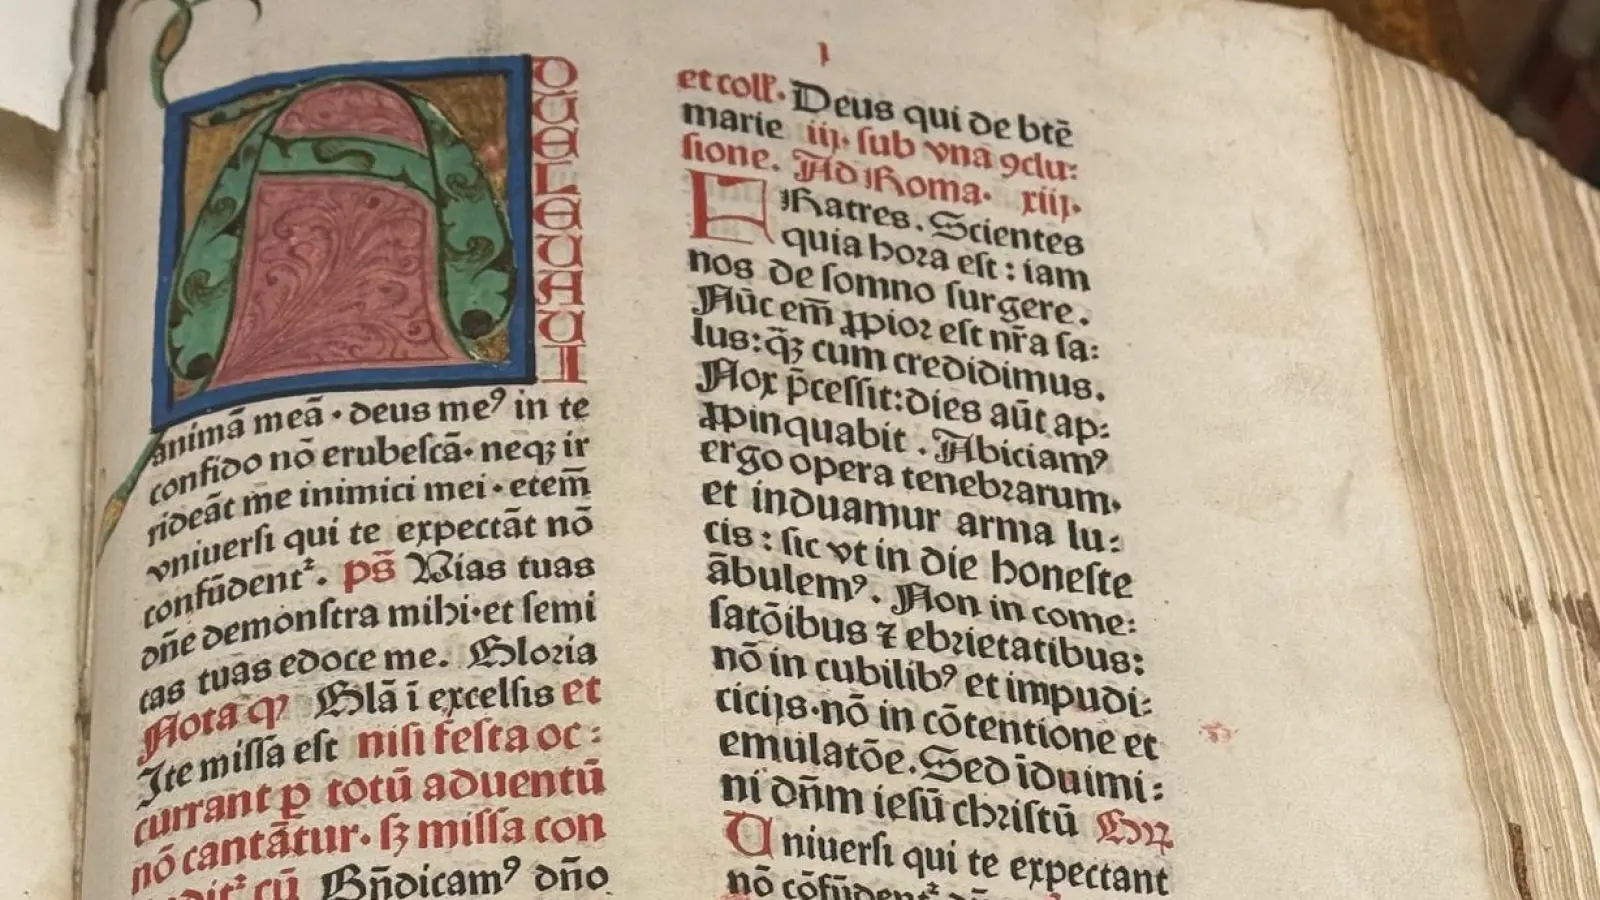 A
D
TE
LEVAVI
animā meā · deus me⁹ in te
confido nō erubescā · neqꝫ ir
rideāt me inimici mei · etem̄
vniuersi qui te expectāt nō
confūdentᷣ. ps̄ Vias tuas
dn̄e demonstra mihi · et semi
tas tuas edoce me. Gloria
Nota qꝫ Glā ī excelsis et
Ite missa est nisi festa oc:
currant ꝑ totū aduentū
nō cantātur · sꝫ missa con
cū Bn̄dicam⁹ dn̄o
I
et coll'. Deus qui de btē
marie iij. sub vna ꝯclu:
sione. Ad Roma. xiij.
FRatres. Scientes
quia hora est : iam
nos de somno surgere.
Nūc em̄ ꝓpior est nr̄a sa:
lus: q̄ꝫ cum credidimus.
Nox p̄cessit: dies aūt ap:
ꝓpinquabit. Abiciam⁹
ergo opera tenebrarum.
et induamur arma lu:
cis : sic vt in die honeste
ābulem⁹. Non in come:
satōibus ⁊ ebrietatibus:
nō in cubilib⁹ et impudi:
cicijs · nō in cōtentione et
emulatōe. Sed īduimi:
ni dn̄m iesū christū Gꝛ̄
Uniuersi qui te expectant
nō cōfūdentᷣ dn̄e